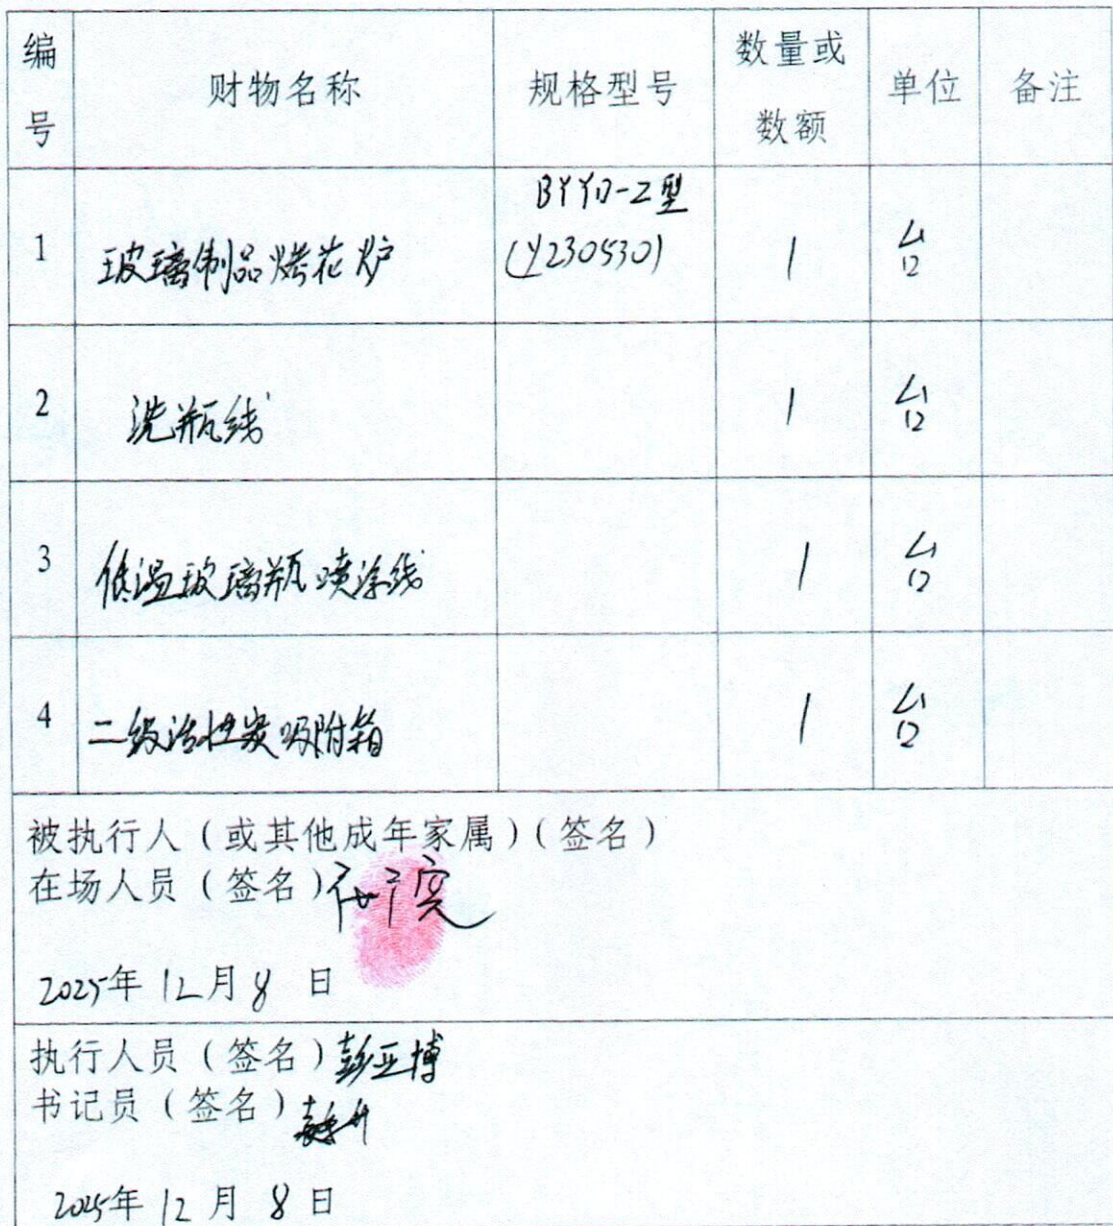 编号 财物名称 规格型号 数量或数额 单位 备注
1 玻璃制品烤花炉 BYYD-Z型 (Y230530) 1 台
2 洗瓶线 1 台
3 低温玻璃瓶喷涂线 1 台
4 二级活性炭吸附箱 1 台
被执行人（或其他成年家属）（签名）
在场人员（签名）
2025年 12月 8 日
执行人员（签名）彭亚博
书记员（签名）
2025年 12 月 8 日